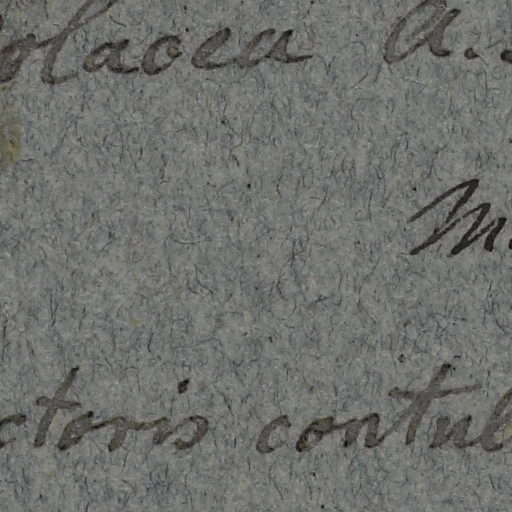 olacea A.
M.
ctoris contul